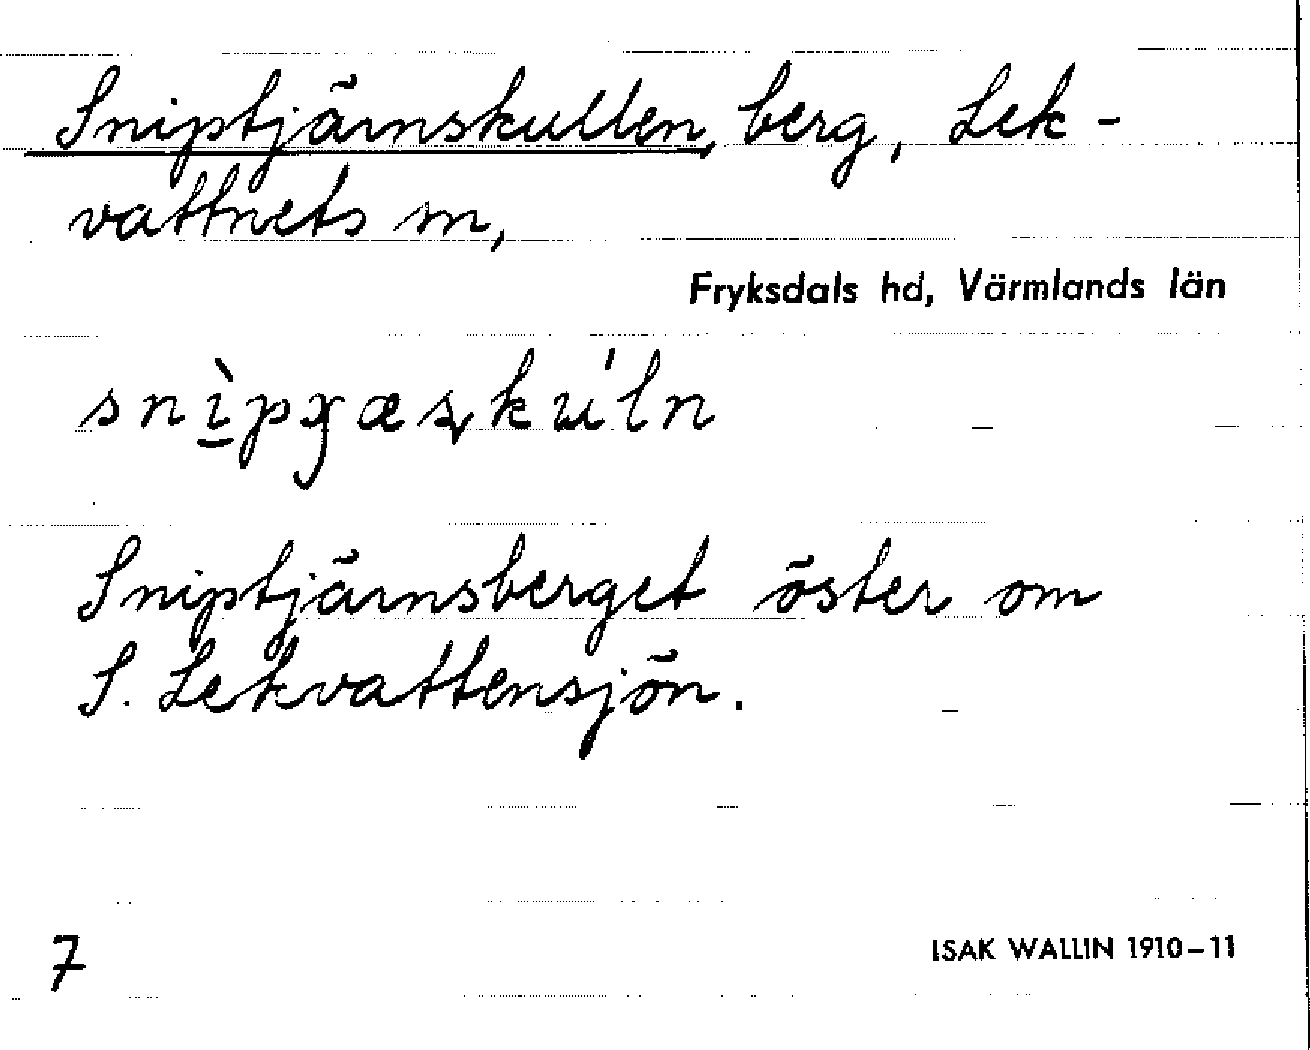 Sniptjärnskullen, berg, Lek-
vattnets m,
Fryksdals hd, Värmlands län
Sniptjärnsberget öster om
S. Lekvattensjön.
7
ISAK WALLIN 1910–11